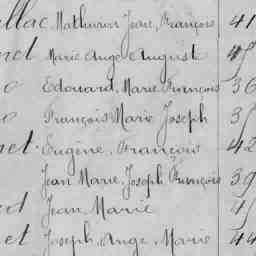 llac Mathurin Jean, François 41
net Marie Ange August 45
o Edouard, Marie François 36
o François Marie Joseph 35
net. Eugène, François 42
Jean Marie, Joseph François 39
Jean Marie 45
et Joseph, Ange, Marie 44